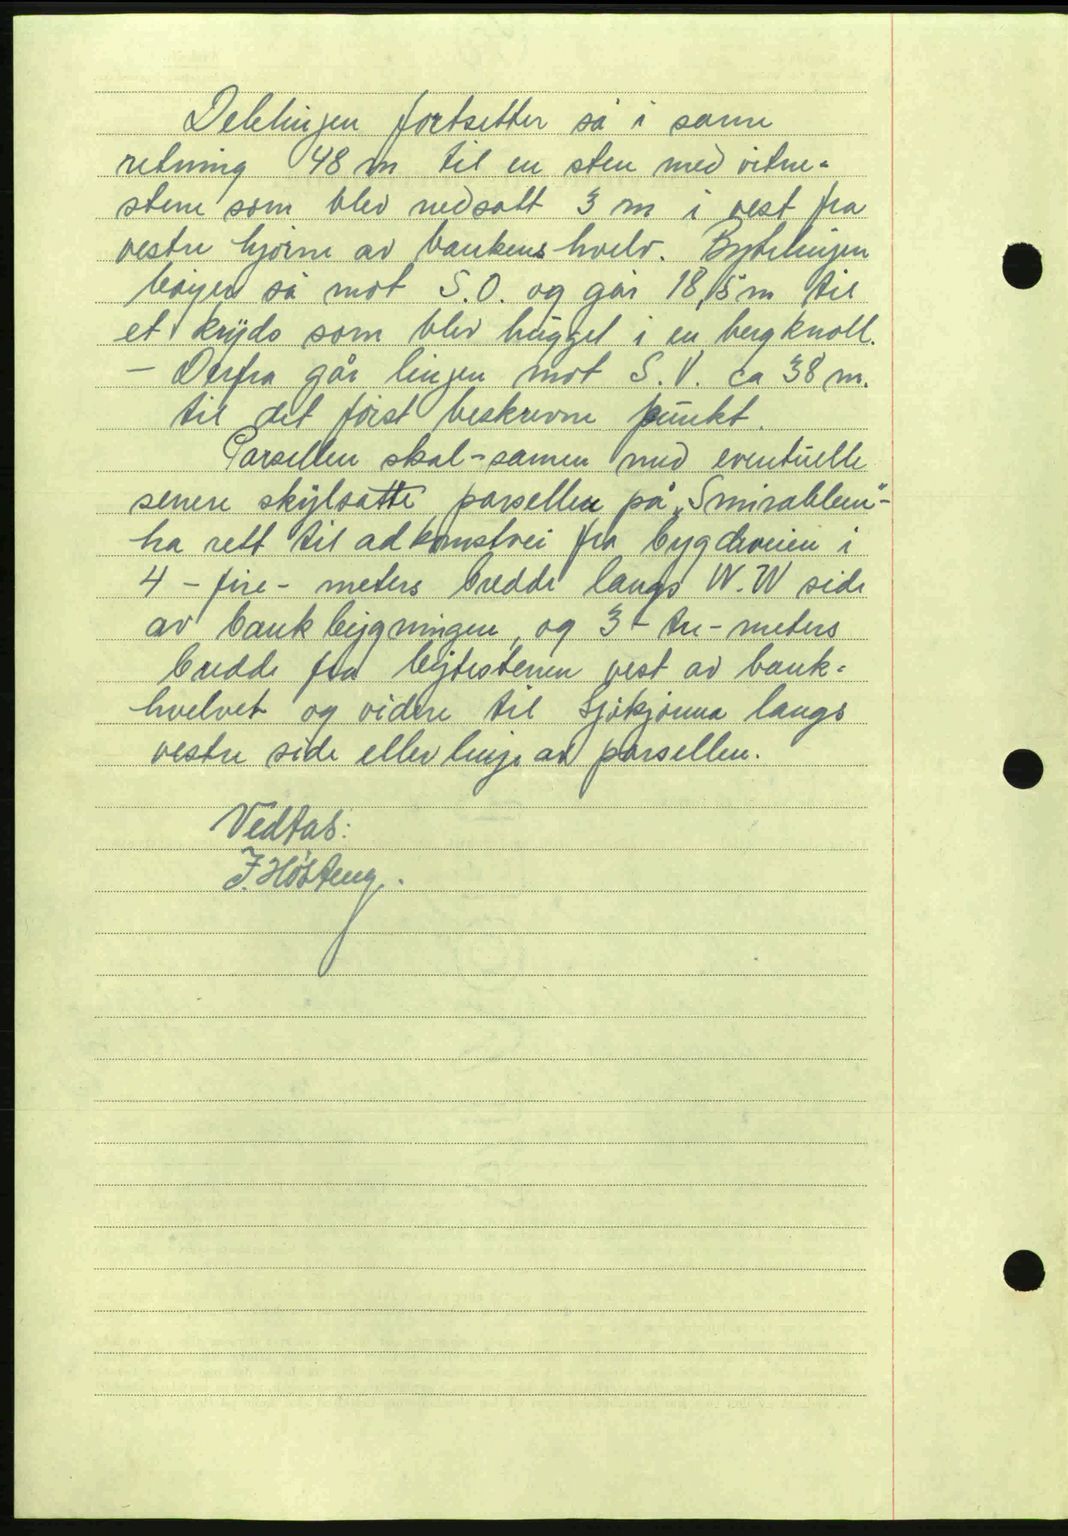 Delelinjen fortsetter så i same
retning 48 m til en sten med vitne-
stene som blev nedsatt 3 m i vest fra
vestre hjörne av bankens hvelv. Bytelinjen
böyer så mot S.O. og går 18,5 m til
et kryds som blev hugget i en bergknoll.
– Derfra går linjen mot S.V. ca 38 m.
til det först beskrevne punkt.
Parsellen skal – samen med eventuelle
senere skyldsatte parseller på "Smirablein" –
ha rett til adkomstvei fra bygdeveien i
4 – fire – meters bredde langs N.W side
av bankbygningen, og 3 – tre – meters
bredde fra bytestenen vest av bank-
hvelvet og videre til Sjökjönna langs
vestre side eller linje av parsellen.
Vedtas:
J. Högteng.